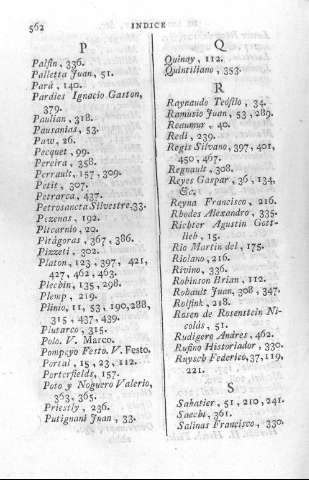 562
INDICE
P
Palfin, 336.
Palletta Juan, 51.
Pará, 140.
Pardies Ignacio Gaston,
379.
Paulian, 318.
Pausanias, 53.
Paw, 26.
Pecquet, 99.
Pereira, 358.
Perrault, 157, 309.
Petit, 307.
Petrarca, 437.
Petrosancta Silvestre, 33.
Pezenas, 192.
Pitcarnio, 20.
Pitágoras, 367, 386.
Pizzeti, 302.
Platon, 123, 397, 421,
427, 462, 463.
Plecbin, 135, 298.
Plemp, 219.
Plinio, 11, 53, 190, 288,
315, 437, 439.
Plutarco, 315.
Polo. V. Marco.
Pompeyo Festo. V. Festo.
Portal, 15, 23, 112.
Porterfields, 157.
Poto y Noguero Valerio,
363, 365.
Priestly, 236.
Putignani Juan, 33.
Q
Quinay, 112.
Quintiliano, 353.
R
Raynaudo Teófilo, 34.
Ramusio Juan, 53, 289.
Reaumur, 40.
Redi, 239.
Regis Silvano, 397, 401,
450, 467.
Regnault, 308.
Reyes Gaspar, 36, 134,
&c.
Reyna Francisco, 216.
Rhodes Alexandro, 335.
Richter Agustin Gott-
lieb, 15.
Rio Martin del, 175.
Riolano, 216.
Rivino, 336.
Robinson Brian, 112.
Robault Juan, 308, 347.
Rolfink, 218.
Rosen de Rosenstein Ni-
colás, 51.
Rudigero Andres, 462.
Rufino Historiador, 330.
Ruysch Federico, 37, 119,
221.
S
Sabatier, 51, 210, 241.
Sacchi, 361.
Salinas Francisco, 330.